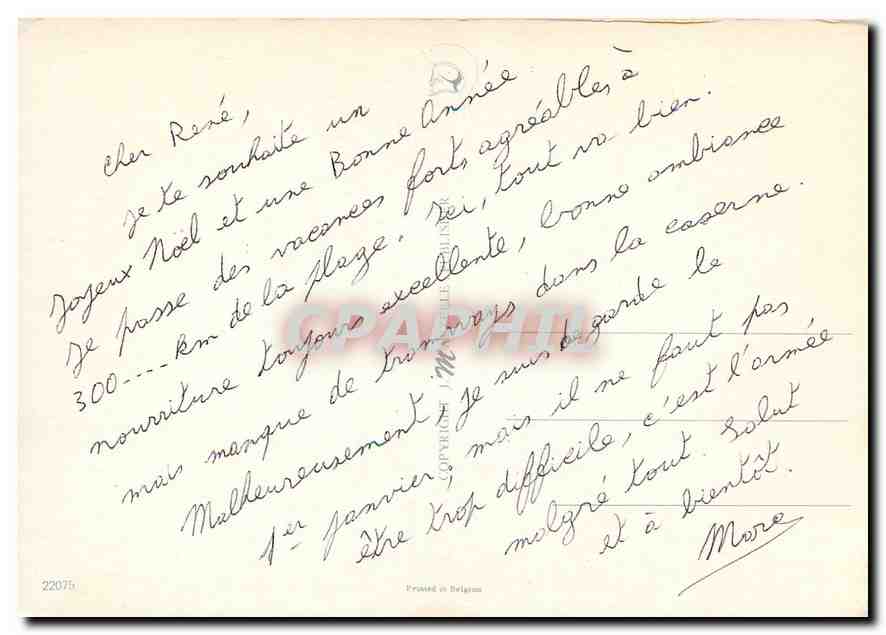 cher René,
je te souhaite un
Joyeux Noël et une Bonne Année
Je passe des vacances forts agréables à
300---- km de la plage. Ici, tout va bien.
nourriture toujours excellente, bonne ambiance
mais manque de tramways dans la caserne.
Malheureusement, je suis de garde le
1er janvier, mais il ne faut pas
être trop difficile, c'est l'armée
malgré tout. Salut
et à bientôt.
Marc
CPAPHIL
COPYRIGHT J.
22075
Printed in Belgium